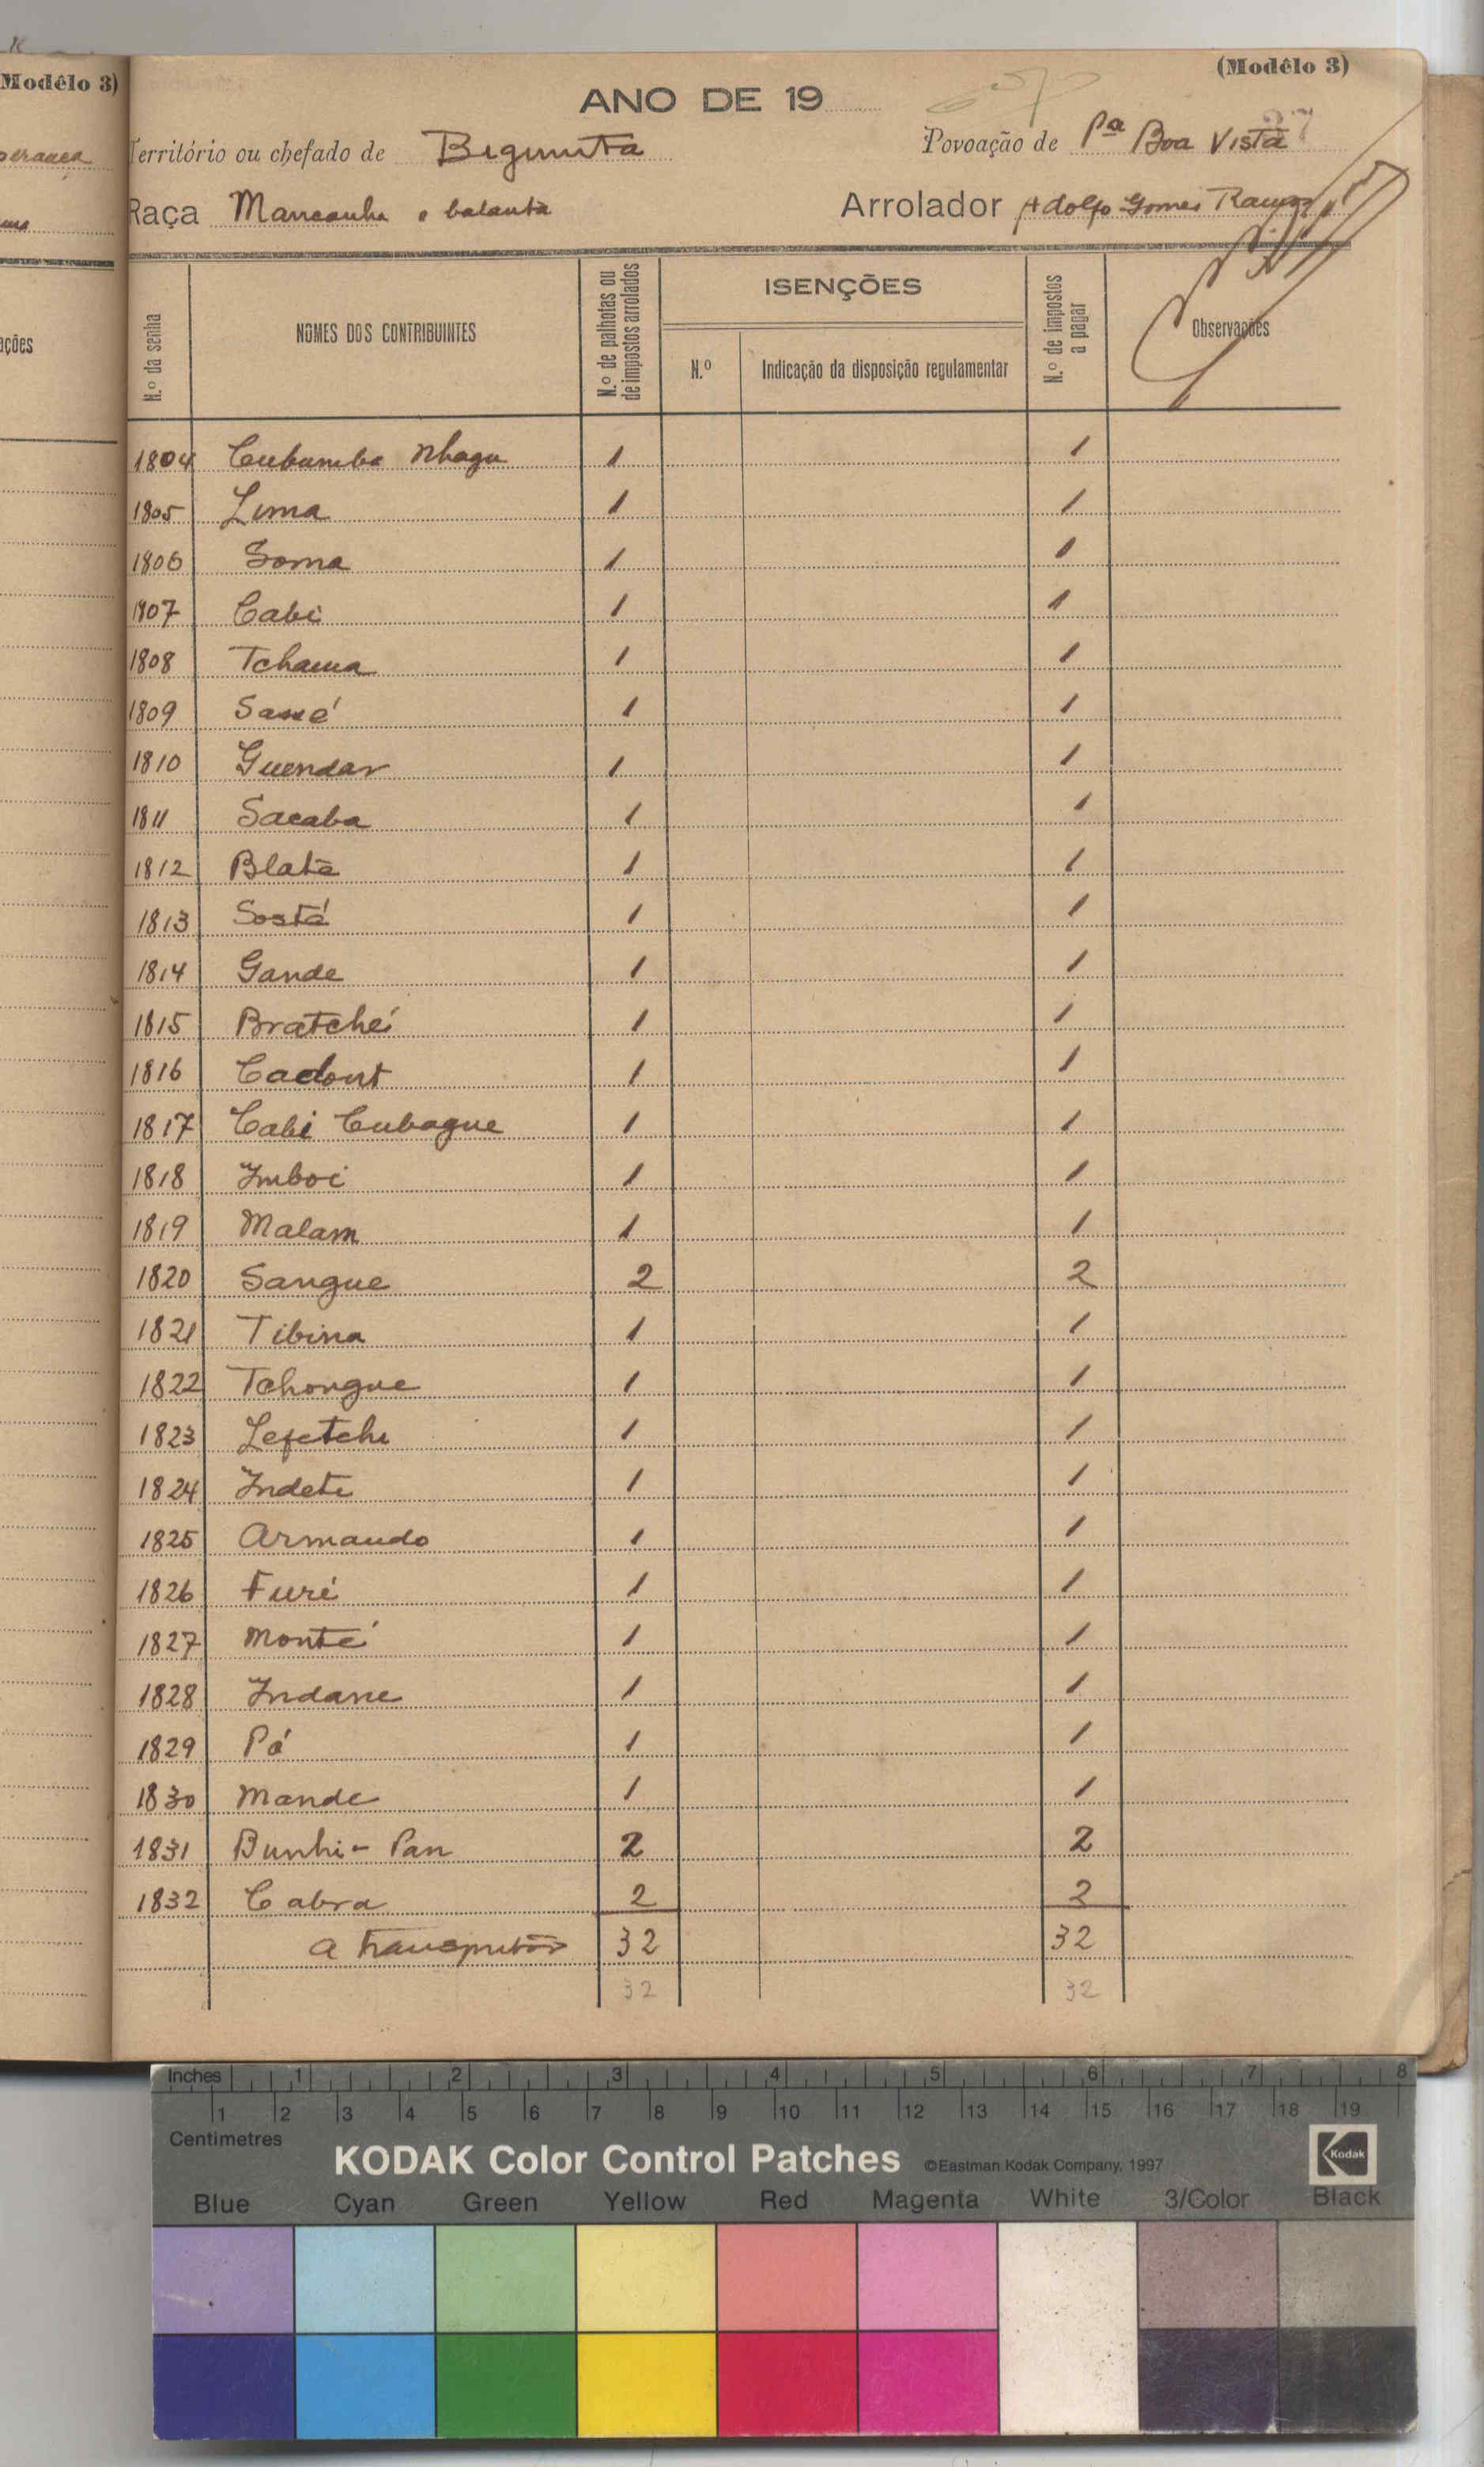 (Modêlo 3)
(Modêlo 3)
ANO DE 19
27
Território ou chefado de Bigimita
Povoação de Pª Boa Vista
Raça Mancanha e balanta
Arrolador Adolfo Gomes Ramos
N.º da senha
NOMES DOS CONTRIBUINTES
N.º de palhotas ou de impostos arrolados
ISENÇÕES
N.º
Indicação da disposição regulamentar
N.º de impostos a pagar
Observações
ações
1804 Cubumba Nhaga 1 1
1805 Lima 1 1
1806 Soma 1 1
1807 Cabi 1 1
1808 Tchama 1 1
1809 Sané 1 1
1810 Guendar 1 1
1811 Sacaba 1 1
1812 Blata 1 1
1813 Sostá 1 1
1814 Gande 1 1
1815 Bratché 1 1
1816 Cadont 1 1
1817 Cabi Cubague 1 1
1818 Imboi 1 1
1819 Malam 1 1
1820 Sangue 2 2
1821 Tibina 1 1
1822 Tchongue 1 1
1823 Lefetche 1 1
1824 Indeti 1 1
1825 Armando 1 1
1826 Furé 1 1
1827 Monté 1 1
1828 Indane 1 1
1829 Pó 1 1
1830 Mande 1 1
1831 Bunhi - Pan 2 2
1832 Cabra 2 2
A Transportar 32 32
32 32
Inches 1 2 3 4 5 6 7 8
1 2 3 4 5 6 7 8 9 10 11 12 13 14 15 16 17 18 19
Centimetres
KODAK Color Control Patches ©Eastman Kodak Company, 1997 Kodak
Blue Cyan Green Yellow Red Magenta White 3/Color Black